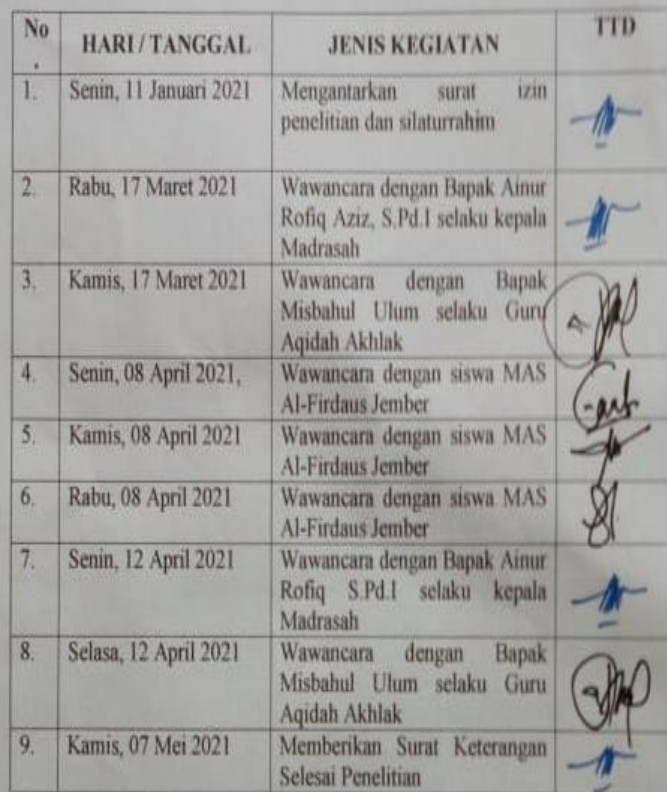 No HARI / TANGGAL JENIS KEGIATAN TTD
.
1. Senin, 11 Januari 2021 Mengantarkan surat izin
penelitian dan silaturrahim
2. Rabu, 17 Maret 2021 Wawancara dengan Bapak Ainur
Rofiq Aziz, S.Pd.I selaku kepala
Madrasah
3. Kamis, 17 Maret 2021 Wawancara dengan Bapak
Misbahul Ulum selaku Guru
Aqidah Akhlak
4. Senin, 08 April 2021, Wawancara dengan siswa MAS
Al-Firdaus Jember
5. Kamis, 08 April 2021 Wawancara dengan siswa MAS
Al-Firdaus Jember
6. Rabu, 08 April 2021 Wawancara dengan siswa MAS
Al-Firdaus Jember
7. Senin, 12 April 2021 Wawancara dengan Bapak Ainur
Rofiq S.Pd.I selaku kepala
Madrasah
8. Selasa, 12 April 2021 Wawancara dengan Bapak
Misbahul Ulum selaku Guru
Aqidah Akhlak
9. Kamis, 07 Mei 2021 Memberikan Surat Keterangan
Selesai Penelitian